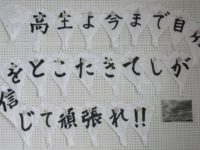 高生よ今まで自分
がしてきたことを
信じて頑張れ!!